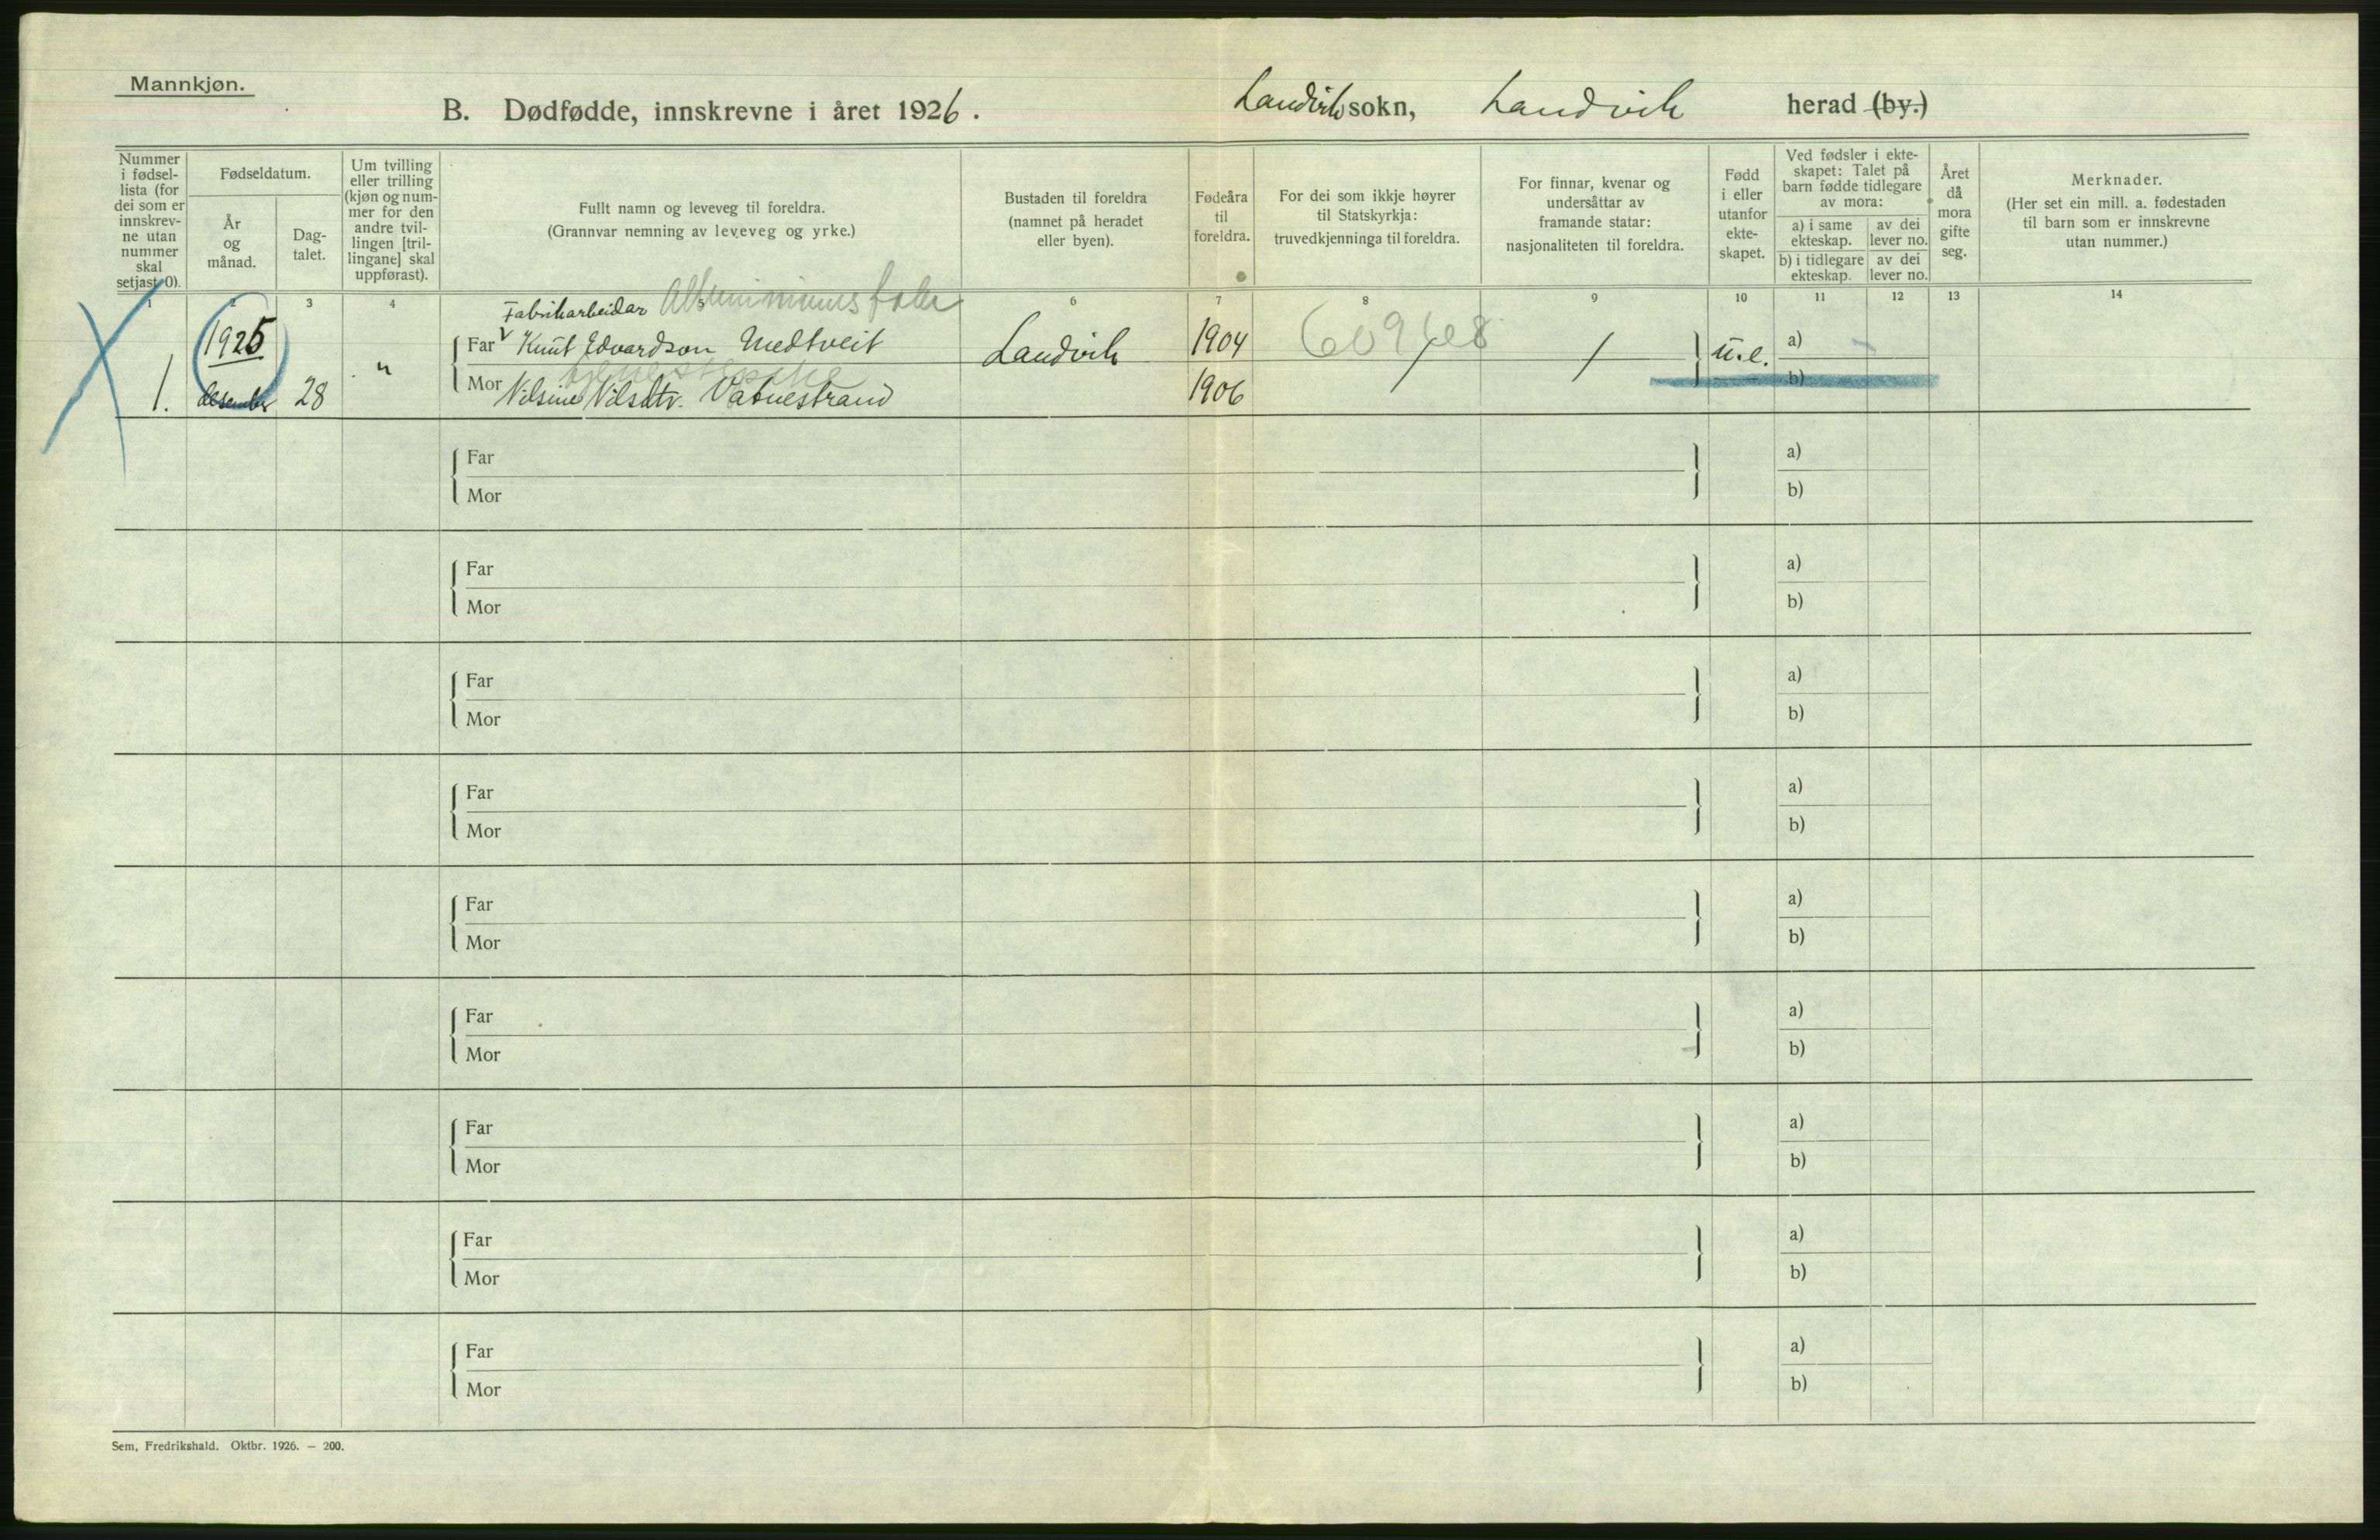 Mannkjøn.
B. Dødfødde, innskrevne i året 1926. Landvik sokn, Landvik herad (by.)
Nummer i fødsel-lista (for dei som er innskrev-ne utan nummer skal setjast 0).
Fødseldatum.
År og månad.
Dag-talet.
Um tvilling eller trilling (kjøn og num-mer for den andre tvil-lingen [tril-lingane] skal uppførast).
Fullt namn og leveveg til foreldra.
(Grannvar nemning av leveveg og yrke.)
Bustaden til foreldra (namnet på heradet eller byen).
Fødeåra til foreldra.
For dei som ikkje høyrer til Statskyrkja: truvedkjenninga til foreldra.
For finnar, kvenar og undersåttar av framande statar: nasjonaliteten til foreldra.
Fødd i eller utanfor ekte-skapet.
Ved fødsler i ekte-skapet: Talet på barn fødde tidlegare av mora:
a) i same ekteskap.
av dei lever no.
b) i tidlegare ekteskap.
av dei lever no.
Året då mora gifte seg.
Merknader.
(Her set ein mill. a. fødestaden til barn som er innskrevne utan nummer.)
1 2 3 4 5 6 7 8 9 10 11 12 13 14
Fabrikarbeidar
1925 Far Knut Edvardson Medtveit Landvik 1904 u.e. a)
1. desember 28 " Mor Nilsine Nilsdtr. Vatnestrand 1906 b)
Far a)
Mor b)
Far a)
Mor b)
Far a)
Mor b)
Far a)
Mor b)
Far a)
Mor b)
Far a)
Mor b)
Far a)
Mor b)
Far a)
Mor b)
Far a)
Mor b)
Sem, Fredrikshald. Oktbr. 1926. — 200.